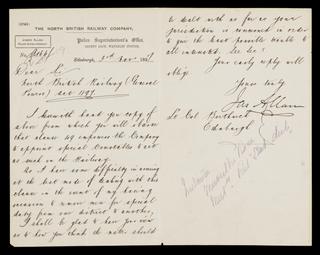 THE NORTH BRITISH RAILWAY COMPANY.
Police Superintendent's Office,
Edinburgh, 3rd Nov. 1897
Dear Sir
North British Railway (General
Powers) Act 1897.
I herewith hand you copy of
above from which you will observe
that clause 49 empowers the Company
to appoint special Constables to act
as such on the Railway.
As I have some difficulty in coming
at the best mode of dealing with this
clause in the event of my having
occasion to remove men for special
duty from one district to another,
I shall be glad to know your views
as to how you think the matter should
be dealt with so far as your
jurisdiction is concerned in order
to give the best possible results to
all interested.
Your early reply will
oblige
Yours truly
Jas Allan
Lt Col Borthwick
Edinburgh